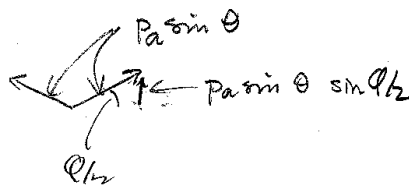 Pa sin θ
Pa sin θ sin φ/2
φ/2